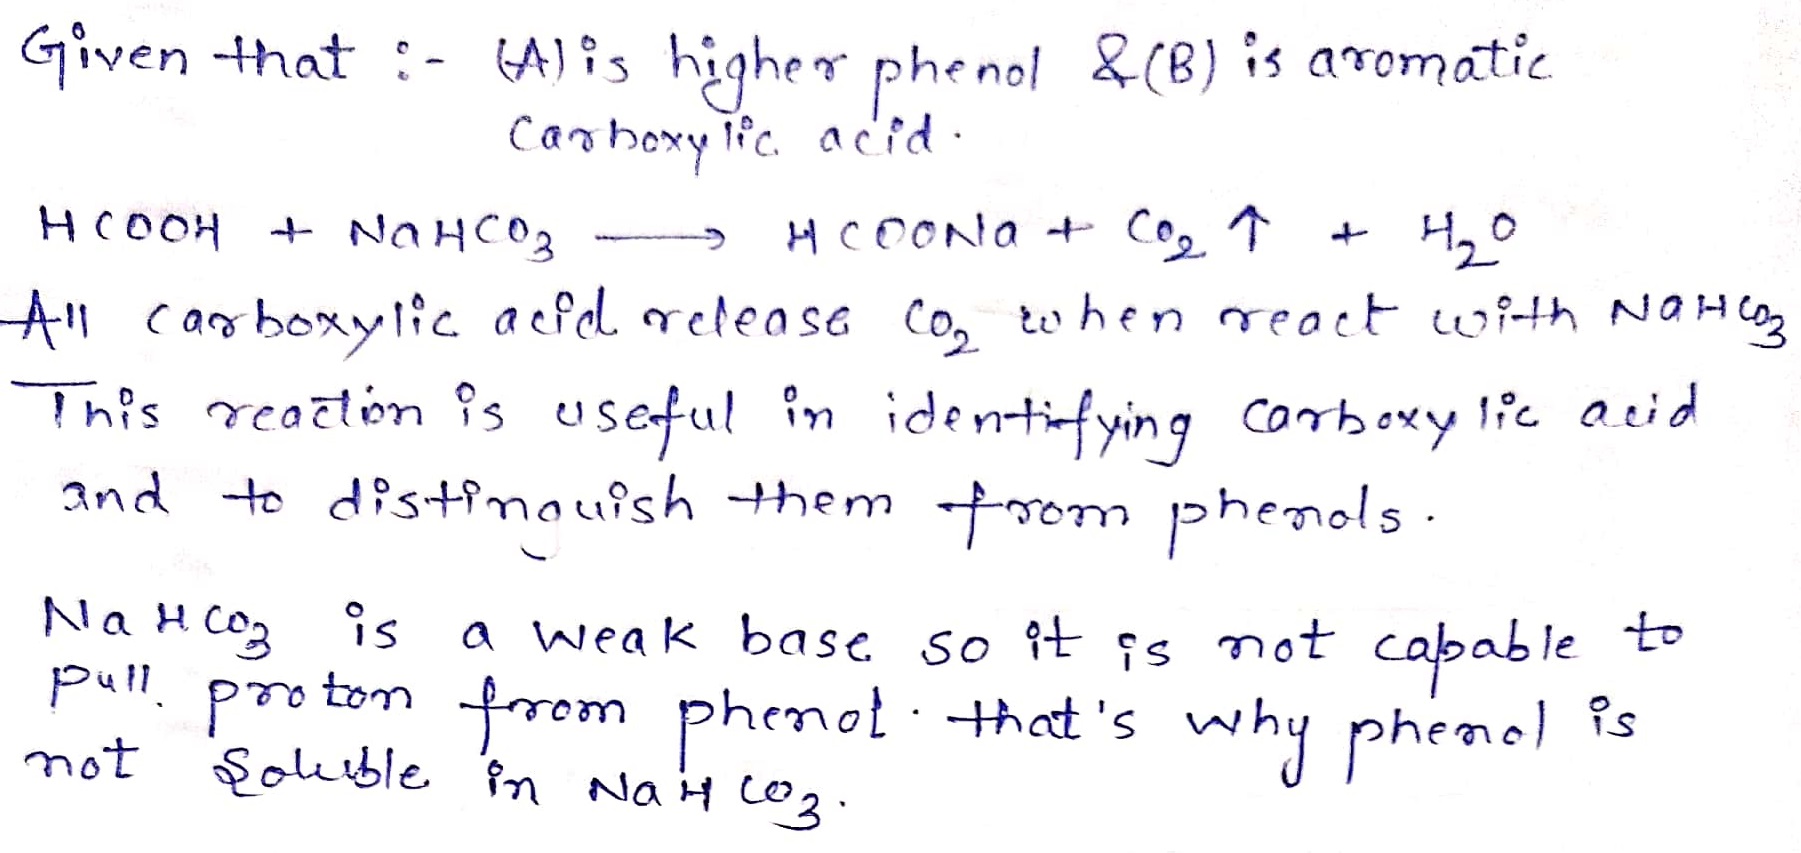 Given that :- (A) is higher phenol & (B) is aromatic
Carboxylic acid.
HCOOH + NaHCO₃ ⟶ HCOONa + CO₂ ↑ + H₂O
All carboxylic acid release CO₂ when react with NaHCO₃
This reaction is useful in identifying carboxylic acid
and to distinguish them from phenols.
NaHCO₃ is a weak base so it is not capable to
pull proton from phenol. that's why phenol is
not soluble in NaHCO₃.